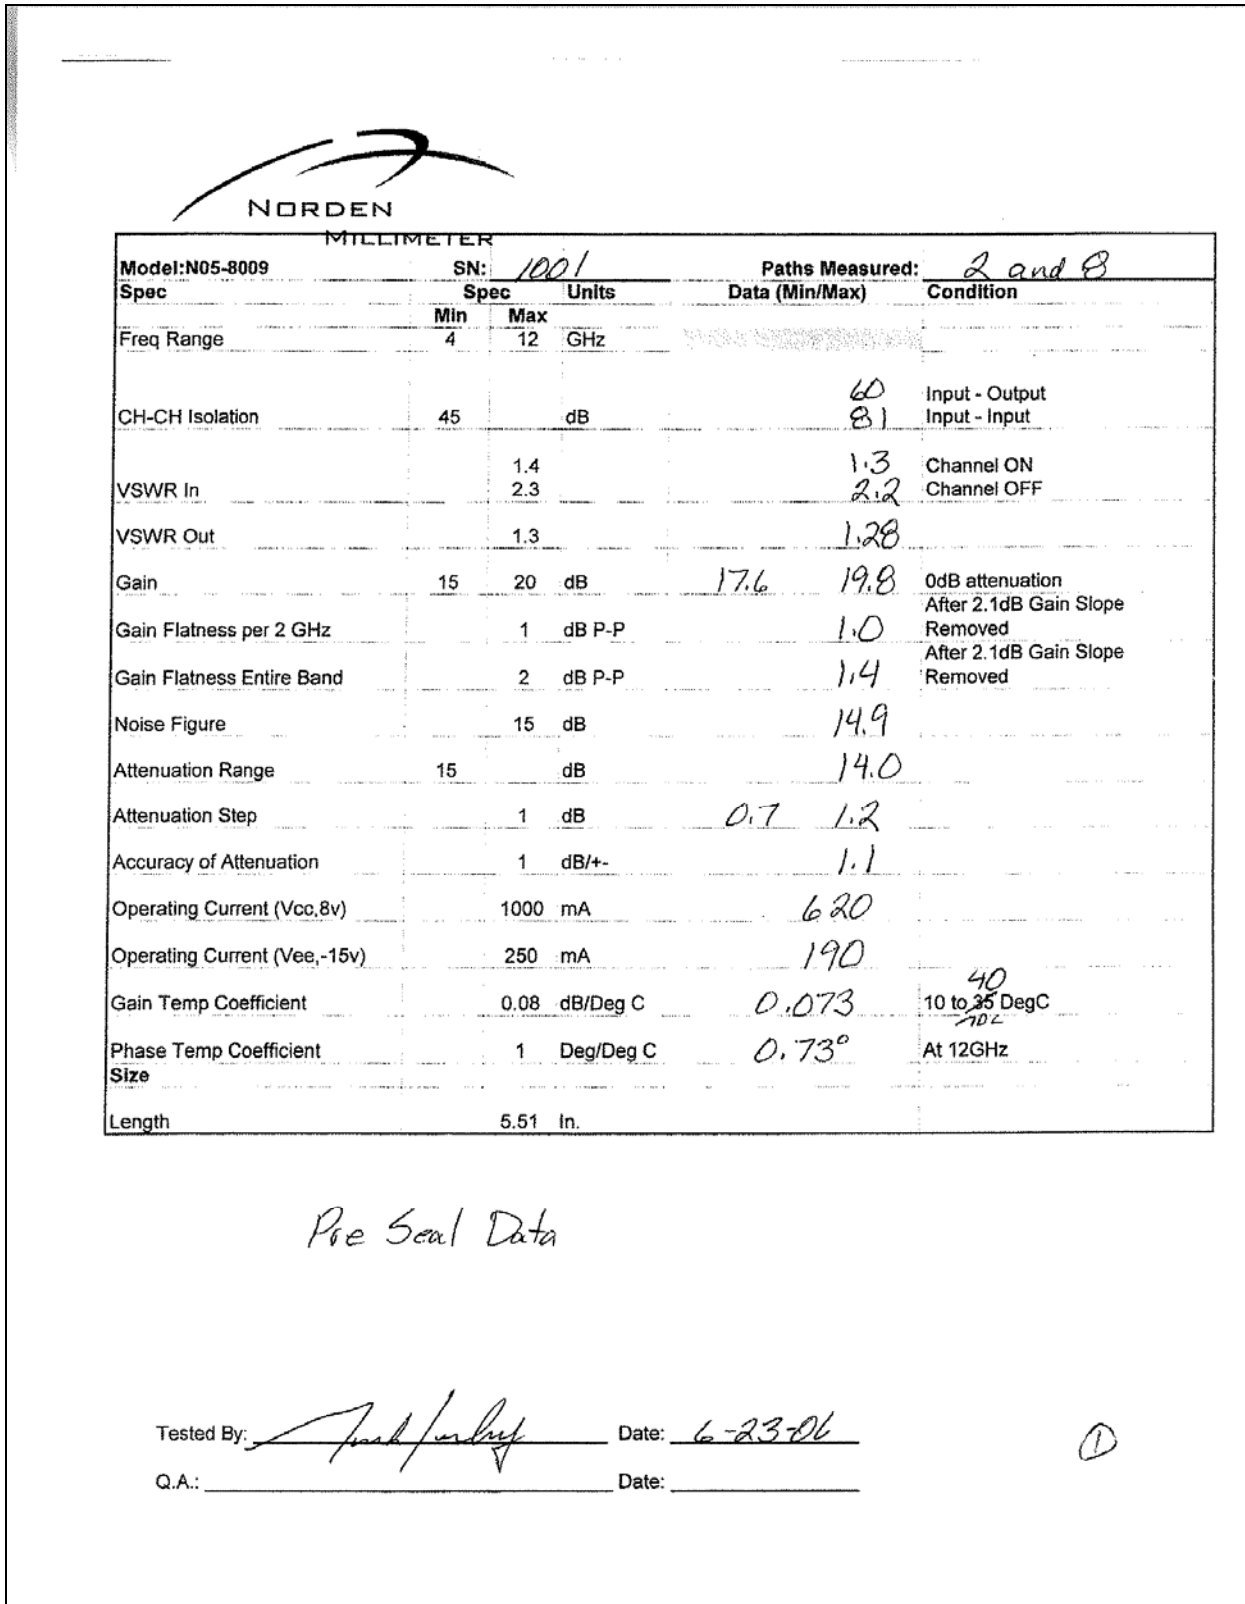 NORDEN
MILLIMETER
Model:N05-8009 SN: 1001 Paths Measured: 2 and 8
Spec Spec Units Data (Min/Max) Condition
Min Max
Freq Range 4 12 GHz
60 Input - Output
CH-CH Isolation 45 dB 81 Input - Input
1.4 1.3 Channel ON
VSWR In 2.3 2.2 Channel OFF
VSWR Out 1.3 1.28
Gain 15 20 dB 17.6 19.8 0dB attenuation
After 2.1dB Gain Slope
Gain Flatness per 2 GHz 1 dB P-P 1.0 Removed
After 2.1dB Gain Slope
Gain Flatness Entire Band 2 dB P-P 1.4 Removed
Noise Figure 15 dB 14.9
Attenuation Range 15 dB 14.0
Attenuation Step 1 dB 0.7 1.2
Accuracy of Attenuation 1 dB/+- 1.1
Operating Current (Vcc,8v) 1000 mA 620
Operating Current (Vee,-15v) 250 mA 190
40
Gain Temp Coefficient 0.08 dB/Deg C 0.073 10 to 35 DegC
Phase Temp Coefficient 1 Deg/Deg C 0.73° At 12GHz
Size
Length 5.51 In.
Pre Seal Data
Tested By: Date: 6-23-06
1
Q.A.: Date: